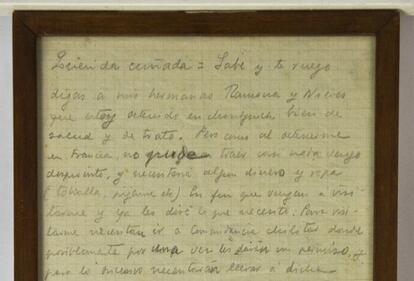 Querida cuñada = Sabe y te ruego
digas a mis hermanas Ramona y Nieves
que estoy detenido en bien de
salud y de trato. Pero como al detenerme
en Francia no pude traer con nada vengo
desprovisto, y necesitaré algún dinero y ropa
(toballa, pijama etc) En fin que vengan a visi-
tarme y ya les diré lo que necesito. Para visi-
tarme necesitan ir a Comandancia militar donde
posiblemente por una vez les darán un permiso, y
para lo sucesivo necesitarán llevar a dicha